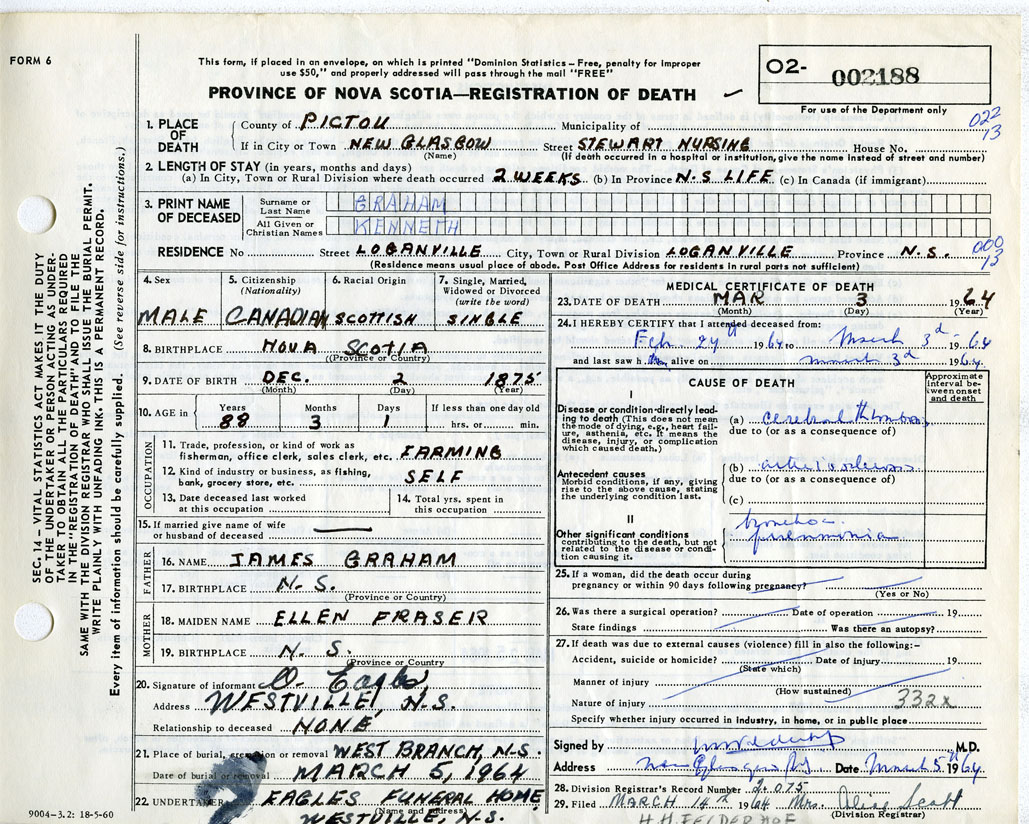 FORM 6
This form, if placed in an envelope, on which is printed "Dominion Statistics – Free, penalty for improper
use $50," and properly addressed will pass through the mail "FREE"
PROVINCE OF NOVA SCOTIA—REGISTRATION OF DEATH
O2- 002188
For use of the Department only
022
13
1. PLACE OF DEATH
County of PICTOU Municipality of
If in City or Town NEW GLASGOW Street STEWART NURSING House No.
(Name) (If death occurred in a hospital or institution, give the name instead of street and number)
2. LENGTH OF STAY (in years, months and days)
(a) In City, Town or Rural Division where death occurred 2 WEEKS (b) In Province N.S. LIFE (c) In Canada (if immigrant)
3. PRINT NAME OF DECEASED
Surname or Last Name GRAHAM
All Given or Christian Names KENNETH
RESIDENCE No Street LOGANVILLE City, Town or Rural Division LOGANVILLE Province N.S.
000
13
(Residence means usual place of abode. Post Office Address for residents in rural parts not sufficient)
4. Sex
MALE
5. Citizenship
(Nationality)
CANADIAN
6. Racial Origin
SCOTTISH
7. Single, Married,
Widowed or Divorced
(write the word)
SINGLE
8. BIRTHPLACE NOVA SCOTIA
(Province or Country)
9. DATE OF BIRTH DEC. 2 1875
(Month) (Day) (Year)
10. AGE in
Years Months Days If less than one day old
88 3 1 hrs. or min.
OCCUPATION
11. Trade, profession, or kind of work as
fisherman, office clerk, sales clerk, etc. FARMING
12. Kind of industry or business, as fishing,
bank, grocery store, etc. SELF
13. Date deceased last worked
at this occupation
14. Total yrs. spent in
this occupation
15. If married give name of wife
or husband of deceased
FATHER
16. NAME JAMES GRAHAM
17. BIRTHPLACE N.S.
(Province or Country)
MOTHER
18. MAIDEN NAME ELLEN FRASER
19. BIRTHPLACE N. S.
(Province or Country
20. Signature of informant O. Eagles
Address WESTVILLE, N.S.
Relationship to deceased NONE
21. Place of burial, cremation or removal WEST BRANCH, N.S.
Date of burial or removal MARCH 5, 1964
22. UNDERTAKER EAGLES FUNERAL HOME
(Name and address)
WESTVILLE, N.S.
9004-3.2: 18-5-60
MEDICAL CERTIFICATE OF DEATH
23. DATE OF DEATH MAR 3 1964
(Month) (Day) (Year)
24. I HEREBY CERTIFY that I attended deceased from:
Feb. 1964 to March 3rd - 64
and last saw h alive on March 3rd 1964
CAUSE OF DEATH
Approximate
interval be-
tween onset
and death
I
Disease or condition directly lead-
ing to death (This does not mean
the mode of dying, e.g., heart fail-
ure, asthenia, etc. It means the
disease, injury, or complication
which caused death.)
(a) cerebral thrombosis
due to (or as a consequence of)
Antecedent causes
Morbid conditions, if any, giving
rise to the above cause, stating
the underlying condition last.
(b)
due to (or as a consequence of)
(c)
II
Other significant conditions
contributing to the death, but not
related to the disease or condi-
tion causing it.
broncho
pneumonia
25. If a woman, did the death occur during
pregnancy or within 90 days following pregnancy?
(Yes or No)
26. Was there a surgical operation? Date of operation 19
State findings Was there an autopsy?
27. If death was due to external causes (violence) fill in also the following:–
Accident, suicide or homicide? Date of injury 19
(State which)
Manner of injury
(How sustained)
Nature of injury 332x
Specify whether injury occurred in industry, in home, or in public place
Signed by M.D.
Address New Glasgow NS Date March 5 1964
28. Division Registrar's Record Number 2075
29. Filed MARCH 14th 1964 Mrs. Aline Scott
(Division Registrar)
H.H. FELDERHOF
SEC. 14 – VITAL STATISTICS ACT MAKES IT THE DUTY
OF THE UNDERTAKER OR PERSON ACTING AS UNDER-
TAKER TO OBTAIN ALL THE PARTICULARS REQUIRED
IN THE "REGISTRATION OF DEATH" AND TO FILE THE
SAME WITH THE DIVISION REGISTRAR WHO SHALL ISSUE THE BURIAL PERMIT.
WRITE PLAINLY WITH UNFADING INK. THIS IS A PERMANENT RECORD.
Every item of information should be carefully supplied. (See reverse side for instructions.)